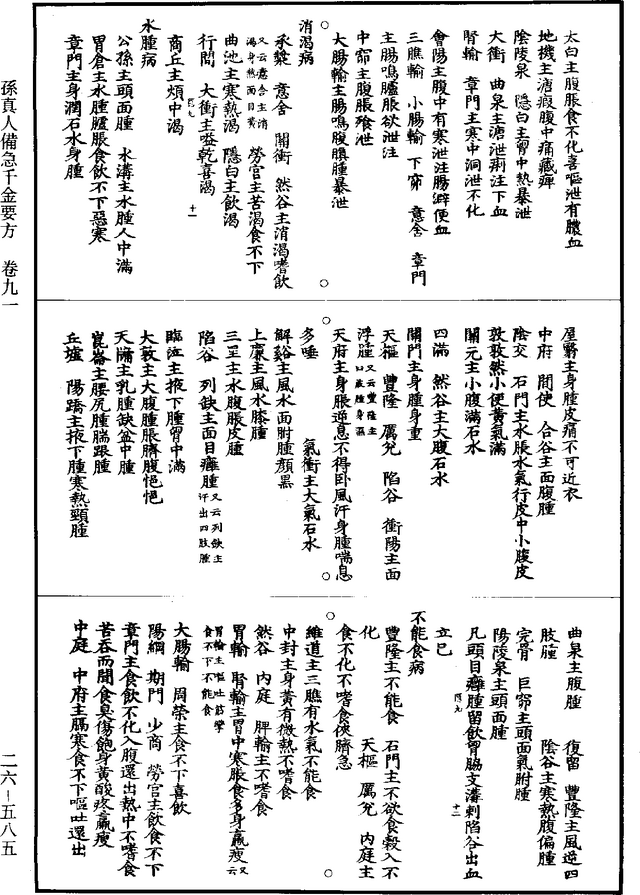 太白主腹脹食不化喜嘔泄有膿血
地機主溏瘕腹中痛藏痺
陰陵泉 隱白主胷中熱暴泄
大衝 曲泉主溏泄痢注下血
腎輸 章門主寒中洞泄不化
會陽主腹中有寒泄注腸澼便血
三膲輸 小腸輸 下窌 意舍 章門
主腸鳴臚脹欲泄注
中窌主腹脹飱泄
大腸輸主腸鳴腹䐜腫暴泄
消渴病
承漿 意舍 關衝 然谷主消渴嗜飲
又云意舍主消渴身熱面目黃
勞宮主苦渴食不下
曲池主寒熱渴 隱白主飲渴
行間 大衝主嗌乾喜渴
商丘主煩中渴
四九 十一
水腫病
公孫主頭面腫 水溝主水腫人中滿
胃倉主水腫臚脹食飲不下惡寒
章門主身潤石水身腫
屋翳主身腫皮痛不可近衣
中府 間使 合谷主面腹腫
陰交 石門主水脹水氣行皮中小腹皮
敦敦然小便黃氣滿
關元主小腹滿石水
四滿 然谷主大腹石水
關門主身腫身重
天樞 豐隆 厲兌 陷谷 衝陽主面
浮腫又云豐隆主四肢腫身濕
天府主身脹逆息不得卧風汗身腫喘息
多唾 氣衝主大氣石水
解谿主風水面胕腫顏黑
上廉主風水膝腫
三里主水腹脹皮腫
陷谷 列缺主面目癰腫又云列缺主汗出四肢腫
臨泣主掖下腫胷中滿
大敦主大腹腫脹臍腹悒悒
天牖主乳腫缺盆中腫
崑崙主腰尻腫腨跟腫
丘墟 陽蹻主掖下腫寒熱頸腫
曲泉主腹腫 復留 豐隆主風逆四
肢腫 陰谷主寒熱腹偏腫
完骨 巨窌主頭面氣胕腫
陽陵泉主頭面腫
凡頭目癰腫留飲胷脇支滿刺陷谷出血
立已 四九 十二
不能食病
豐隆主不能食 石門主不欲食穀入不
化 天樞 厲兌 內庭主
食不化不嗜食俠臍急
維道主三膲有水氣不能食
中封主身黃有微熱不嗜食
然谷 內庭 脾輸主不嗜食
胃輸 腎輸主胃中寒脹食多身羸瘦又云
胃輸主嘔吐筋攣食不下不能食
大腸輸 周榮主食不下喜飲
陽綱 期門 少商 勞宮主飲食不下
章門主食飲不化入腹還出熱中不嗜食
苦吞而聞食臭傷飽身黃酸疼羸瘦
中庭 中府主膈寒食不下嘔吐還出
孫真人備急千金要方 卷九一
二六－五八五